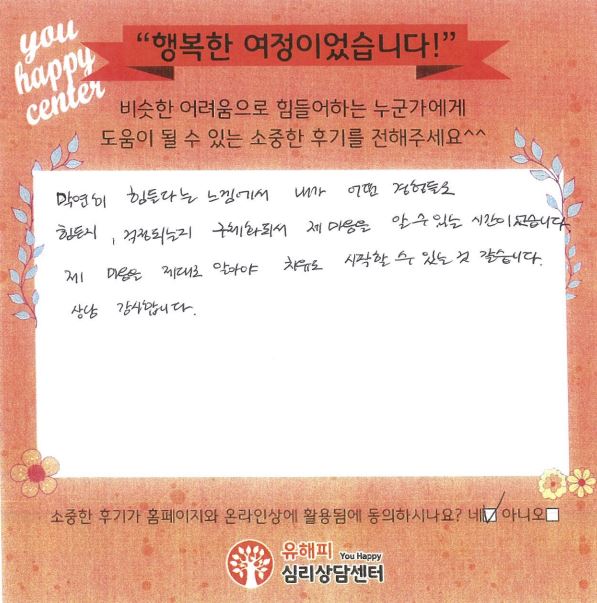 you
happy
center
“행복한 여정이었습니다!”
비슷한 어려움으로 힘들어하는 누군가에게
도움이 될 수 있는 소중한 후기를 전해주세요^^
막연히 힘든다는 느낌에서 내가 어떤 경험들로
힘든지, 걱정되는지 구체화되서 제 마음을 알 수 있는 시간이었습니다.
제 마음을 제대로 알아야 치유도 시작할 수 있는 것 같습니다.
상담 감사합니다.
소중한 후기가 홈페이지와 온라인상에 활용됨에 동의하시나요? 네☑ 아니오☐
유해피 You Happy
심리상담센터